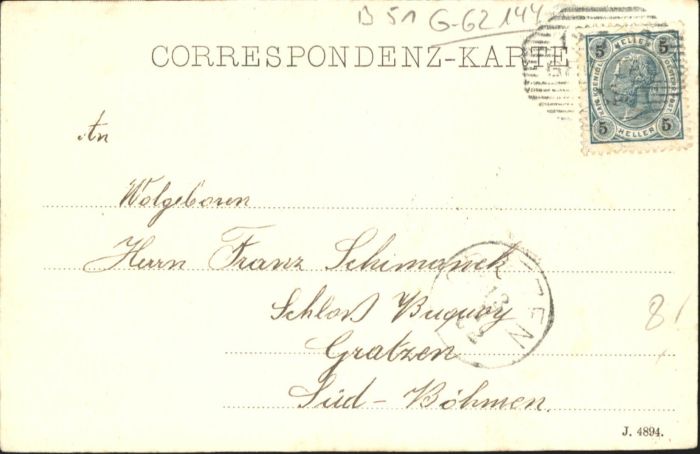 B 51 G-62 144
CORRESPONDENZ-KARTE
5 HELLER 5
5 HELLER 5
An
Wolgeboren
Herrn Franz Schimanek
Schloß Buquoy
Gratzen
Süd-Böhmen.
8
J. 4894.